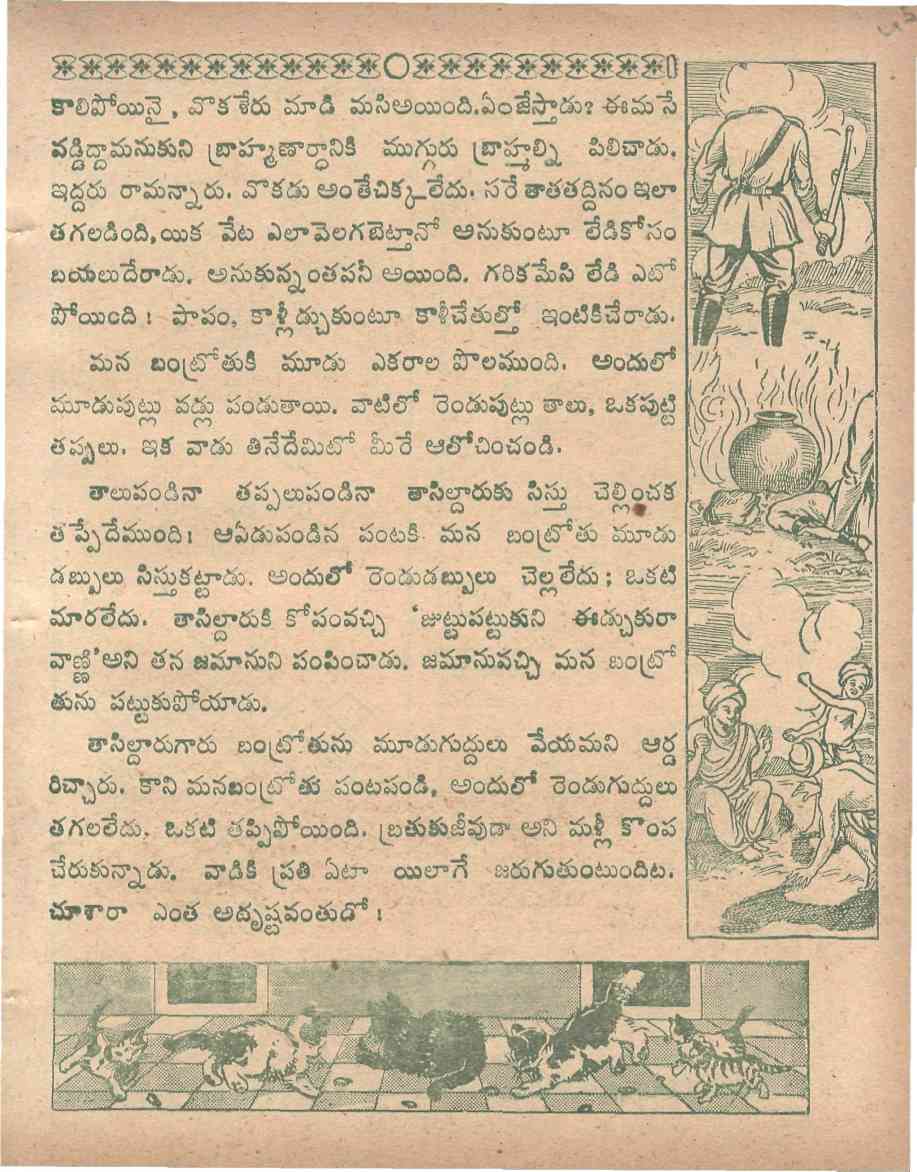 కాలిపోయినై, వొకశేరు మాడి మసిఅయింది.ఏంజేస్తాడు? ఈమసే
వడ్డిద్దామనుకుని బ్రాహ్మణార్థానికి ముగ్గురు బ్రాహ్మల్ని పిలిచాడు.
ఇద్దరు రామన్నారు. వొకడు అంతేచిక్కలేదు. సరే తాతతద్దినం ఇలా
తగలడింది,యిక వేట ఎలావెలగబెట్తానో అనుకుంటూ లేడికోసం
బయలుదేరాడు. అనుకున్నంతపనీ అయింది. గరికమేసి లేడి ఎటో
పోయింది! పాపం, కాళ్లీడ్చుకుంటూ కాళీచేతుల్తో ఇంటికిచేరాడు.
మన బంట్రోతుకి మూడు ఎకరాల పొలముంది. అందులో
మూడుపుట్లు వడ్లు పండుతాయి. వాటిలో రెండుపుట్లు తాలు, ఒకపుట్టి
తప్పలు. ఇక వాడు తినేదేమిటో మీరే ఆలోచించండి.
తాలుపండినా తప్పలుపండినా తాసిల్దారుకు సిస్తు చెల్లించక
తప్పేదేముంది! ఆఏడుపండిన పంటకి మన బంట్రోతు మూడు
డబ్బులు సిస్తుకట్టాడు. అందులో రెండుడబ్బులు చెల్లలేదు; ఒకటి
మారలేదు. తాసిల్దారుకి కోపంవచ్చి 'జుట్టుపట్టుకుని ఈడ్చుకురా
వాణ్ణి'అని తన జమానుని పంపించాడు. జమానువచ్చి మన బంట్రో
తును పట్టుకుపోయాడు.
తాసిల్దారుగారు బంట్రోతును మూడుగుద్దులు వేయమని ఆర్డ
రిచ్చారు. కాని మనబంట్రోతు పంటపండి, అందులో రెండుగుద్దులు
తగలలేదు. ఒకటి తప్పిపోయింది. బ్రతుకుజీవుడా అని మళ్లీ కొంప
చేరుకున్నాడు. వాడికి ప్రతి ఏటా యిలాగే జరుగుతుంటుందిట.
చూశారా ఎంత అదృష్టవంతుడో!